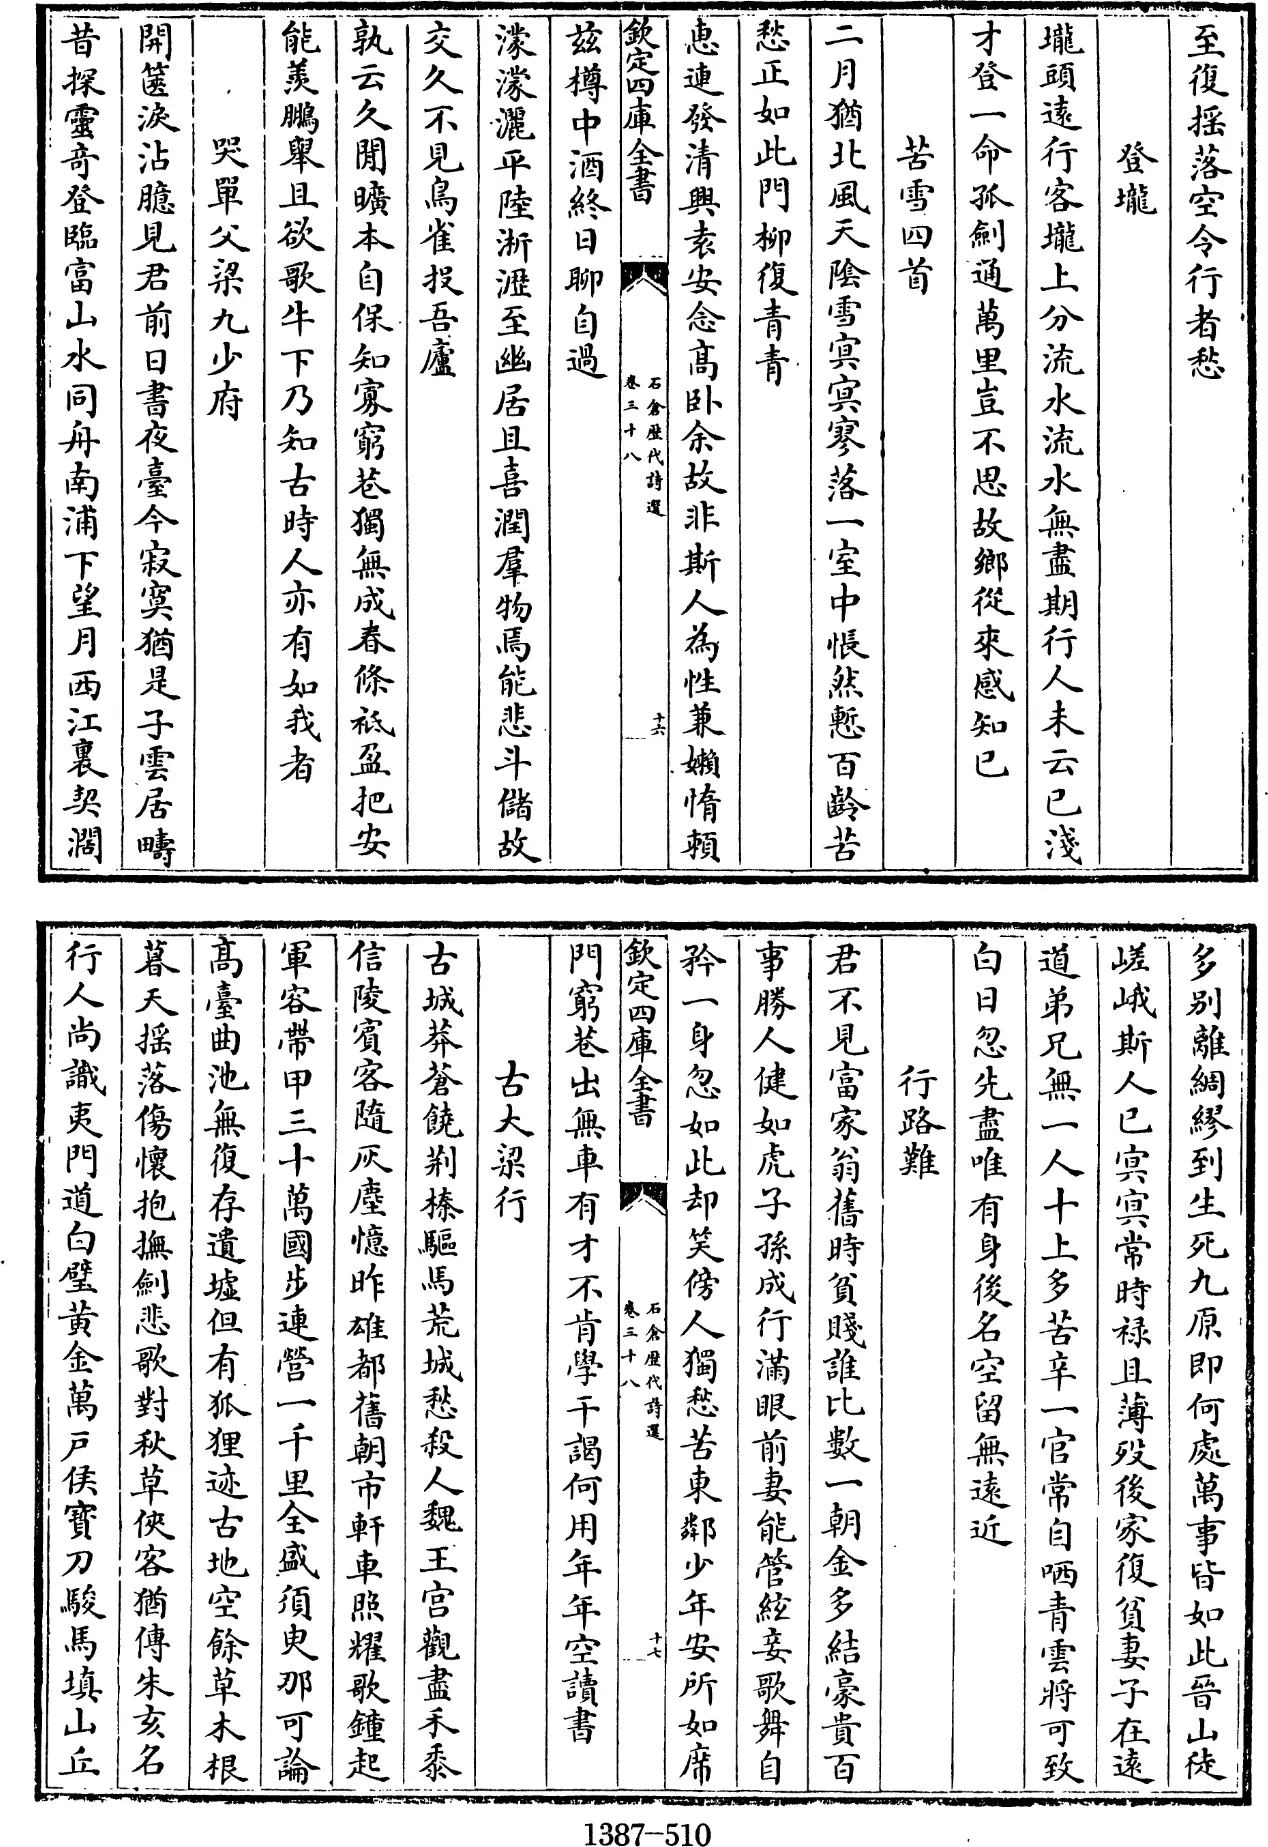 至復揺落空令行者愁
登壠
壠頭逺行客壠上分流水流水無盡期行人未云已淺
才登一命孤劍通萬里豈不思故鄉從來感知已
苦雪四首
二月猶北風天隂雪㝠㝠寥落一室中悵然慙百齡苦
愁正如此門柳復青青
惠連發清興袁安念髙卧余故非斯人為性兼嬾惰頼
欽定四庫全書
石倉歴代詩選
卷三十八
十六
兹樽中酒終日聊自過
濛濛灑平陸淅瀝至幽居且喜潤羣物焉能悲斗儲故
交久不見鳥雀投吾廬
孰云久閒曠本自保知寡窮巷獨無成春條祗盈把安
能羨鵬舉且欲歌牛下乃知古時人亦有如我者
哭單父梁九少府
開篋淚沾臆見君前日書夜臺今寂寞猶是子雲居疇
昔探靈奇登臨富山水同舟南浦下望月西江裏契濶
多別離綢繆到生死九原即何處萬事皆如此晉山徒
嵯峨斯人已㝠㝠常時禄且薄殁後家復貧妻子在逺
道弟兄無一人十上多苦辛一官常自哂青雲将可致
白日忽先盡唯有身後名空留無逺近
行路難
君不見富家翁舊時貧賤誰比數一朝金多結豪貴百
事勝人健如虎子孫成行滿眼前妻能管絃妾歌舞自
矜一身忽如此却笑傍人獨愁苦東鄰少年安所如席
欽定四庫全書
石倉歴代詩選
卷三十八
十七
門窮巷出無車有才不肯學干謁何用年年空讀書
古大梁行
古城莽蒼饒荆榛驅馬荒城愁殺人魏王宫觀盡禾黍
信陵賓客隨灰塵憶昨雄都舊朝市軒車照耀歌鐘起
軍容帶甲三十萬國歩連營一千里全盛須臾那可論
髙臺曲池無復存遺墟但有狐狸迹古地空餘草木根
暮天揺落傷懷抱撫劍悲歌對秋草俠客猶傳朱亥名
行人尚識夷門道白璧黄金萬戸侯寳刀駿馬填山丘
1387—510